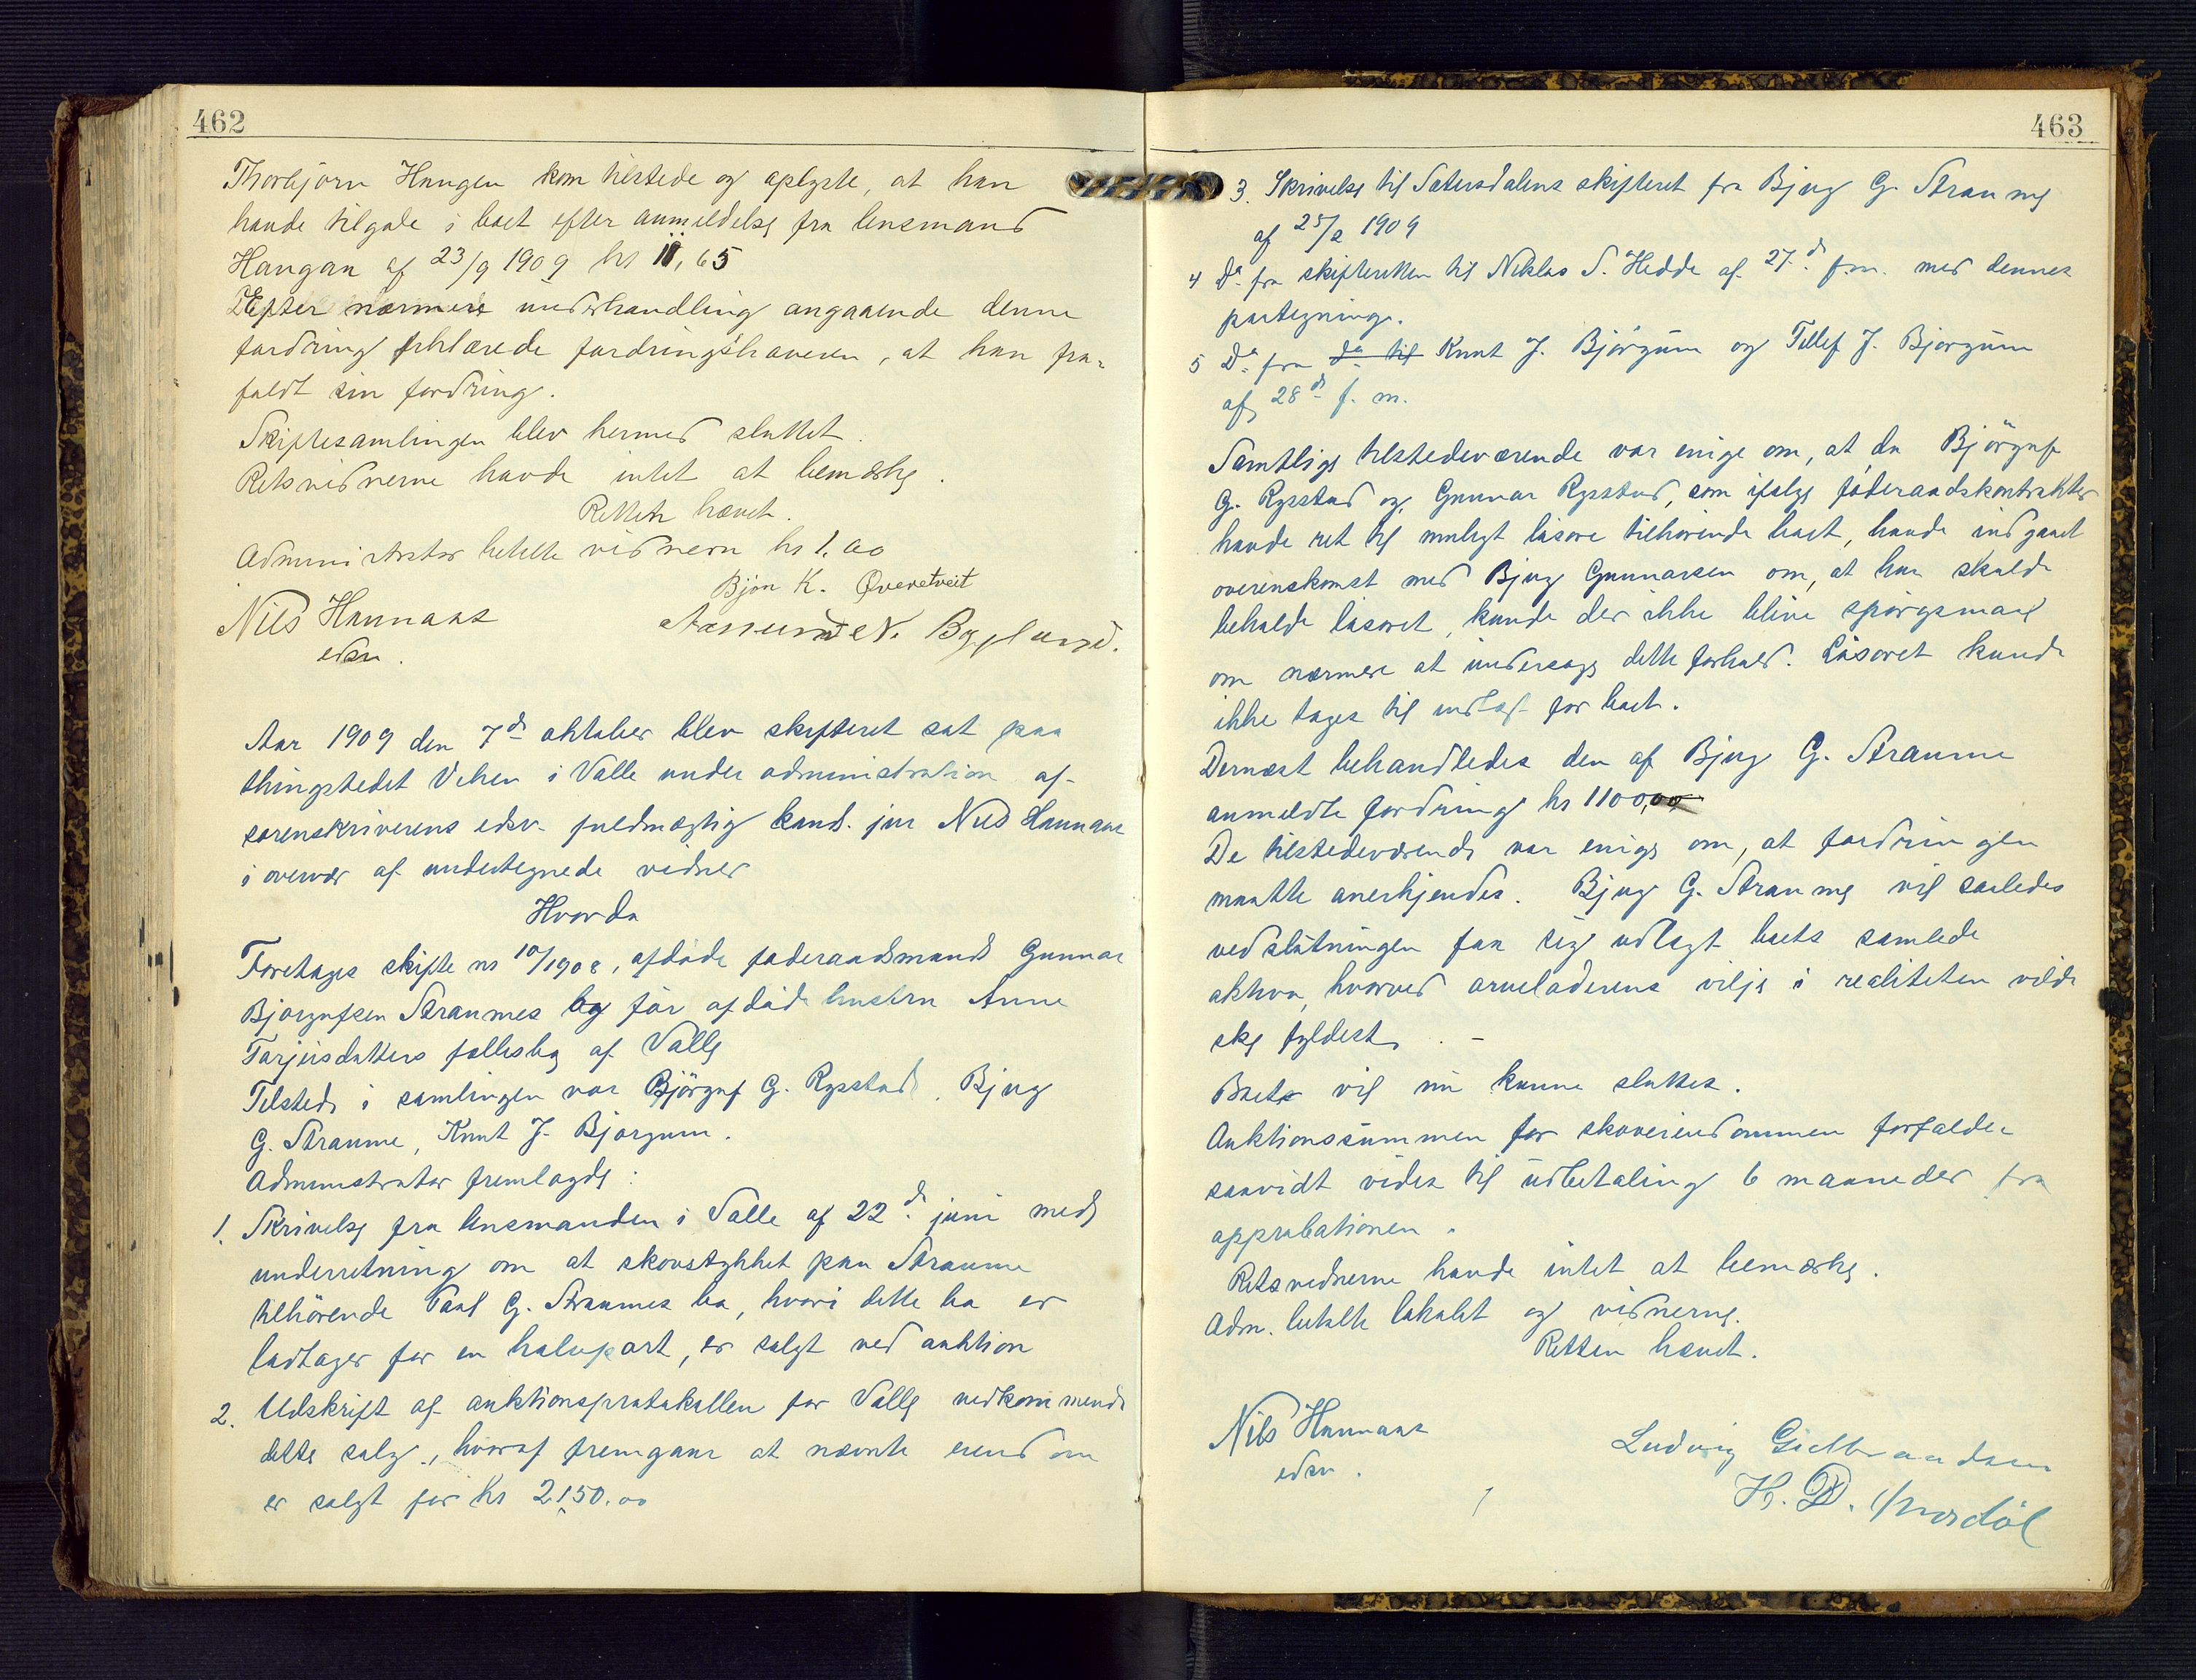 462
Thorbjörn Haugen kom tilstede og oplyste, at han
havde tilgode i boet efter anmeldelse fra lensmand
Haugan af 23/9 1909 kr 11,65
Efter nærmere underhandling angaaende denne
fordring erklærede fordringshaveren, at han fra-
faldt sin fordring.
Skiftesamlingen blev hermed sluttet.
Retsvidnerne havde intet at bemærke.
Retten hævet.
Administrator betalte vidnern kr 1.00
Bjørn K. Øvretveit
Nils Hannaas
edsv.
Aasmund N. Bygland.
Aar 1909 den 7de oktober blev skifteret sat paa
thingstedet Viken i Valle under administration af
sorenskriverens edsv. fuldmægtig kand. jur Nils Hannaas
i overvær af undertegnede vidner
Hvorda
Foretages skifte nr 10/1908, afdøde føderaadsmand Gunnar
Bjorgufsen Straumes og før afdøde hustru Anne
Torjusdatters fællesbo af Valle
Tilstede i samlingen var Björguf G. Rysstad, Bjug
G. Straume, Knut J. Bjorgum.
Administrator fremlagde:
1. Skrivelse fra lensmanden i Valle af 22de juni med
underretning om at skovstykket paa Straume
tilhörende Paal G. Straumes bo, hvori dette bo er
lodtager for en halvpart, er solgt ved auktion
2. Udskrift af auktionsprotokollen for Valle vedkommende
dette salg, hvoraf fremgaar at nævnte eiendom
er solgt for kr 2150.00
463
3. Skrivelse til Sætersdalens skifteret fra Bjug G. Straume
af 25/2 1909
4 Do fra skifteretten til Niklas S. Hedde af 27de f.m. med dennes
paategning.
5 Do fra do til Knut J. Björgum og Tellef J. Bjorgum
af 28de f. m.
Samtlige tilstedeværende var enige om, at da Björguf
G. Rysstad og Gunnar Rysstad, som ifølge føderaadskontrakter
havde ret til muligt løsøre tilhørende boet, havde indgaaet
overenskomst med Bjug Gunnarsen om, at han skulde
beholde løsøret, kunde der ikke blive spørgsmaal
om nærmere at undersøge dette forhold. Løsøret kunde
ikke tages til indtægt for boet.
Dernæst behandledes den af Bjug G. Straume
anmeldte fordring kr 1100,00
De tilstedeværende var enige om, at fordringen
maatte anerkjendes. Bjug G. Straume vil saaledes
ved slutningen faa sig udlagt boets samlede
aktiva, hvorved arveladerens vilje i realiteten vilde
ske fyldest. -
Boet vil nu kunne sluttes.
Auktionssummen for skoveiendommen forfalder
saavidt vides til udbetaling 6 maaneder fra
approbationen.
Retsvidnerne havde intet at bemærke.
Adm. betalte lokalet og vidnerne.
Retten hævet.
Nils Hannaas
edsv.
Ludvig Gulbrandsen
H. D.